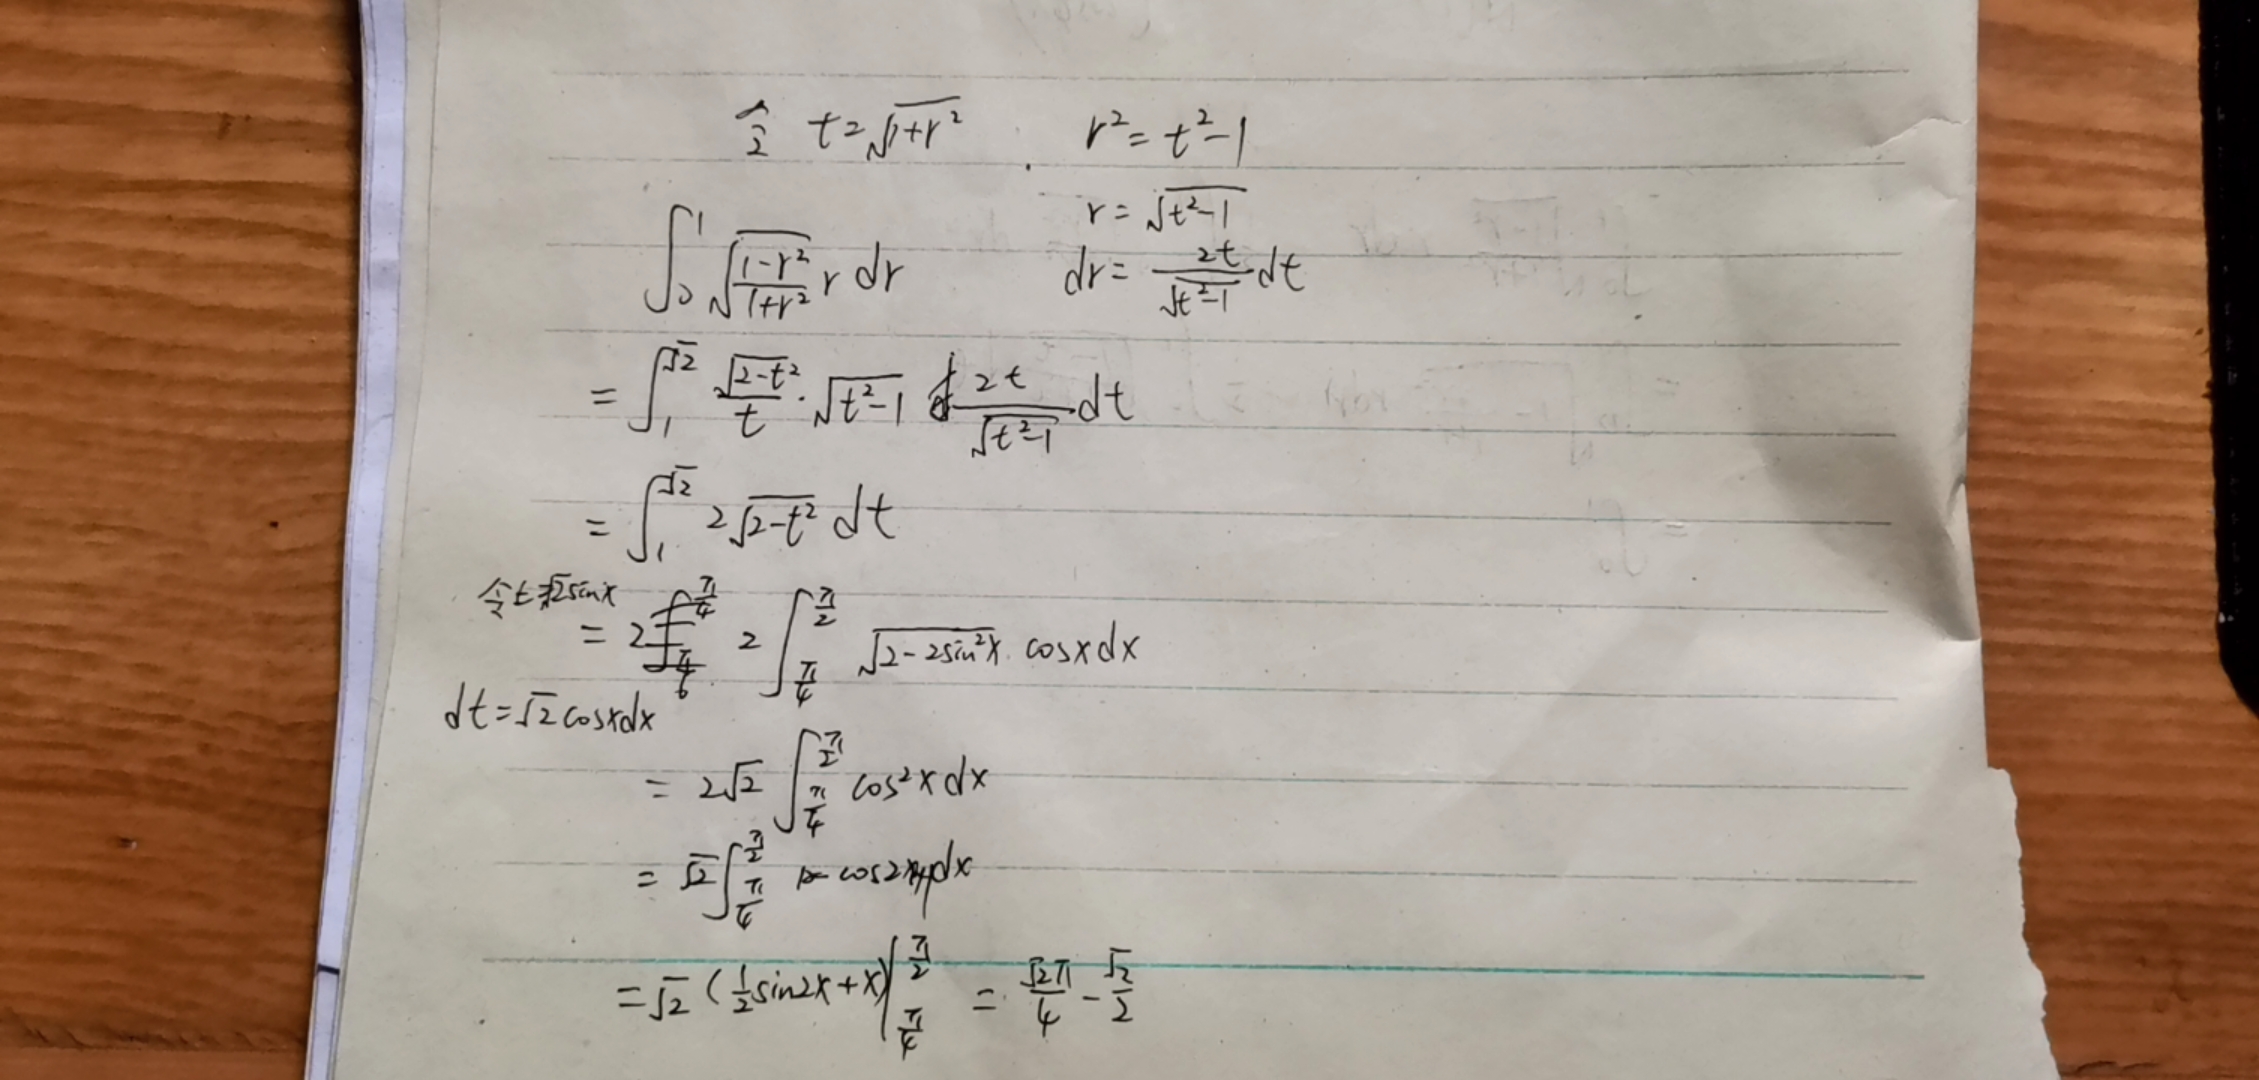 令 t=√(1+r²) r²=t²-1
r=√(t²-1)
∫₀¹ √((1-r²)/(1+r²)) r dr dr= 2t/√(t²-1) dt
= ∫₁^√2 √(2-t²)/t · √(t²-1) 2t/√(t²-1) dt
= ∫₁^√2 2√(2-t²) dt
令t=√2sinx
= 2 ∫_{π/4}^{π/2} √(2-2sin²x) cosxdx
dt=√2cosxdx
= 2√2 ∫_{π/4}^{π/2} cos²x dx
= √2 ∫_{π/4}^{π/2} cos2x+1dx
= √2 (1/2 sin2x+x)|_{π/4}^{π/2} = √2π/4 - √2/2